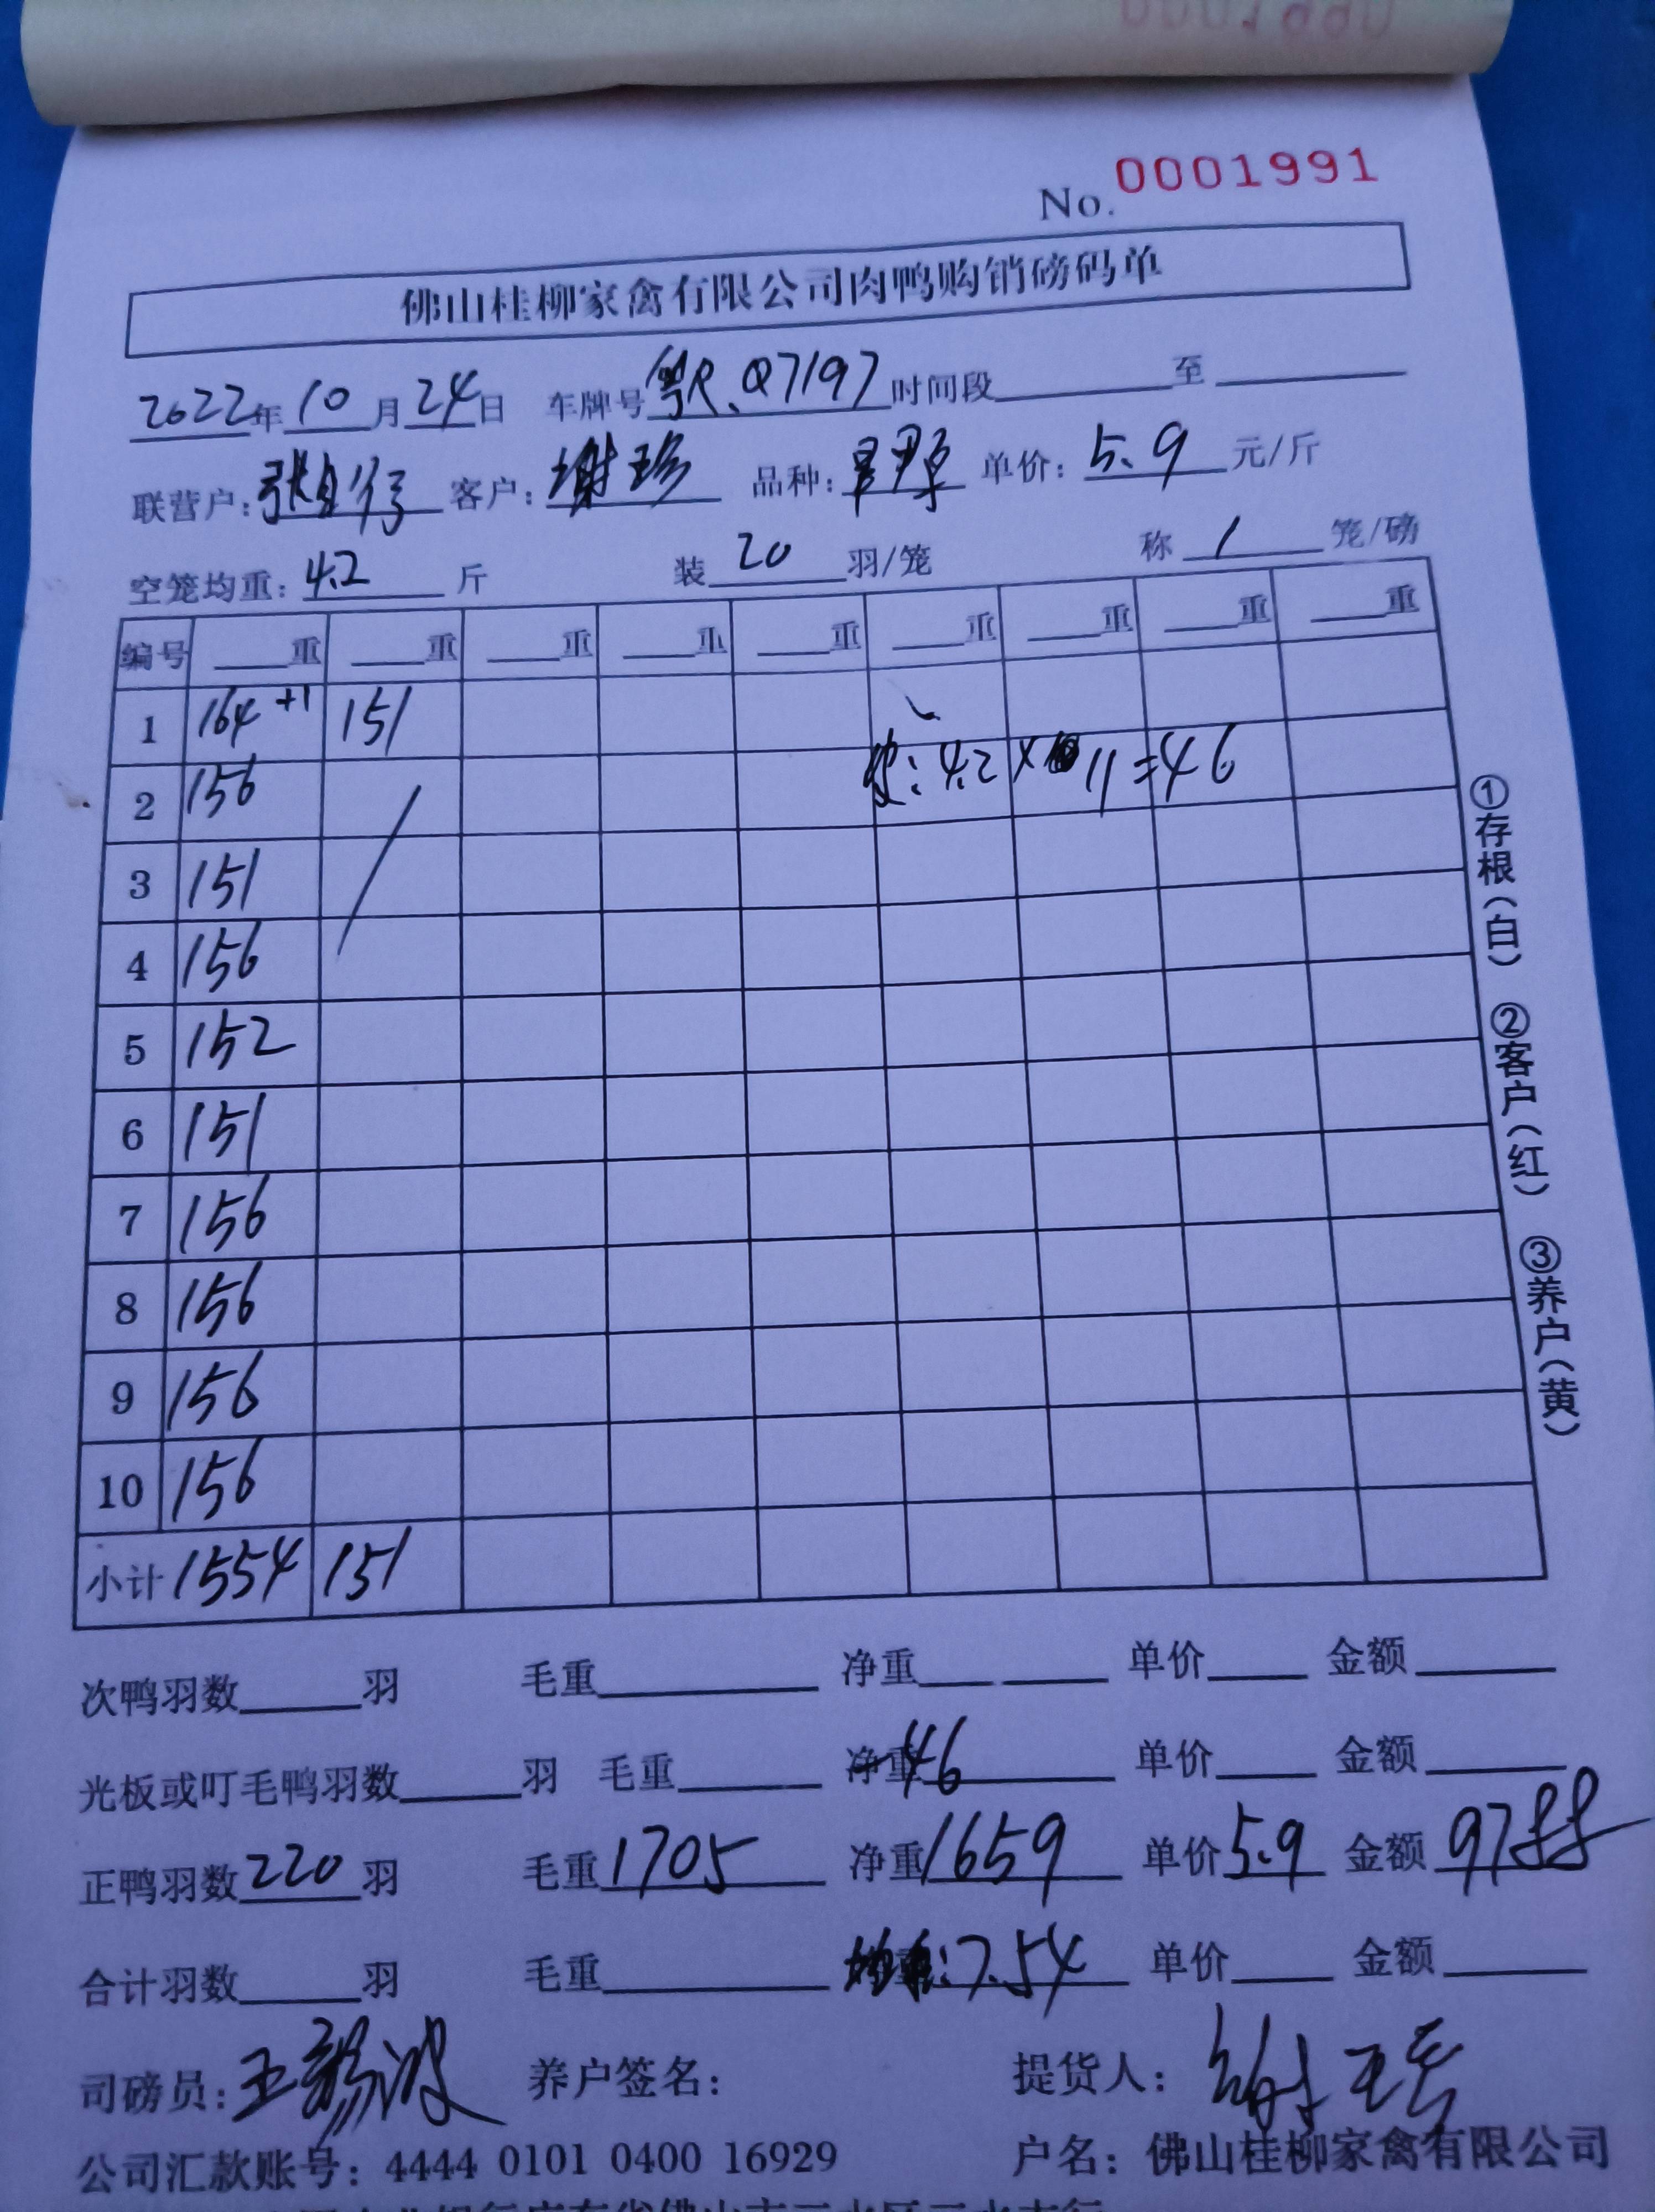 No. 0001991
佛山桂柳家禽有限公司肉鸭购销磅码单
2022年 10 月 24 日 车牌号 粤R.Q7197 时间段 至
联营户: 张 客户: 谢珍 品种: 单价: 5.9 元/斤
空笼均重: 4.2 斤 装 20 羽/笼 称 1 笼/磅
编号 重 重 重 重 重 重 重 重 重
1 164 +1 151
2 156 4.2 × 11 = 46
3 151
4 156
5 152
6 151
7 156
8 156
9 156
10 156
小计 1554 151
①存根(白) ②客户(红) ③养户(黄)
次鸭羽数 羽 毛重 净重 单价 金额
光板或叮毛鸭羽数 羽 毛重 净重 -46 单价 金额
正鸭羽数 220 羽 毛重 1705 净重 1659 单价 5.9 金额 9788
合计羽数 羽 毛重 均重: 7.54 单价 金额
司磅员: 王 波 养户签名: 提货人: 谢
公司汇款账号: 4444 0101 0400 16929 户名: 佛山桂柳家禽有限公司